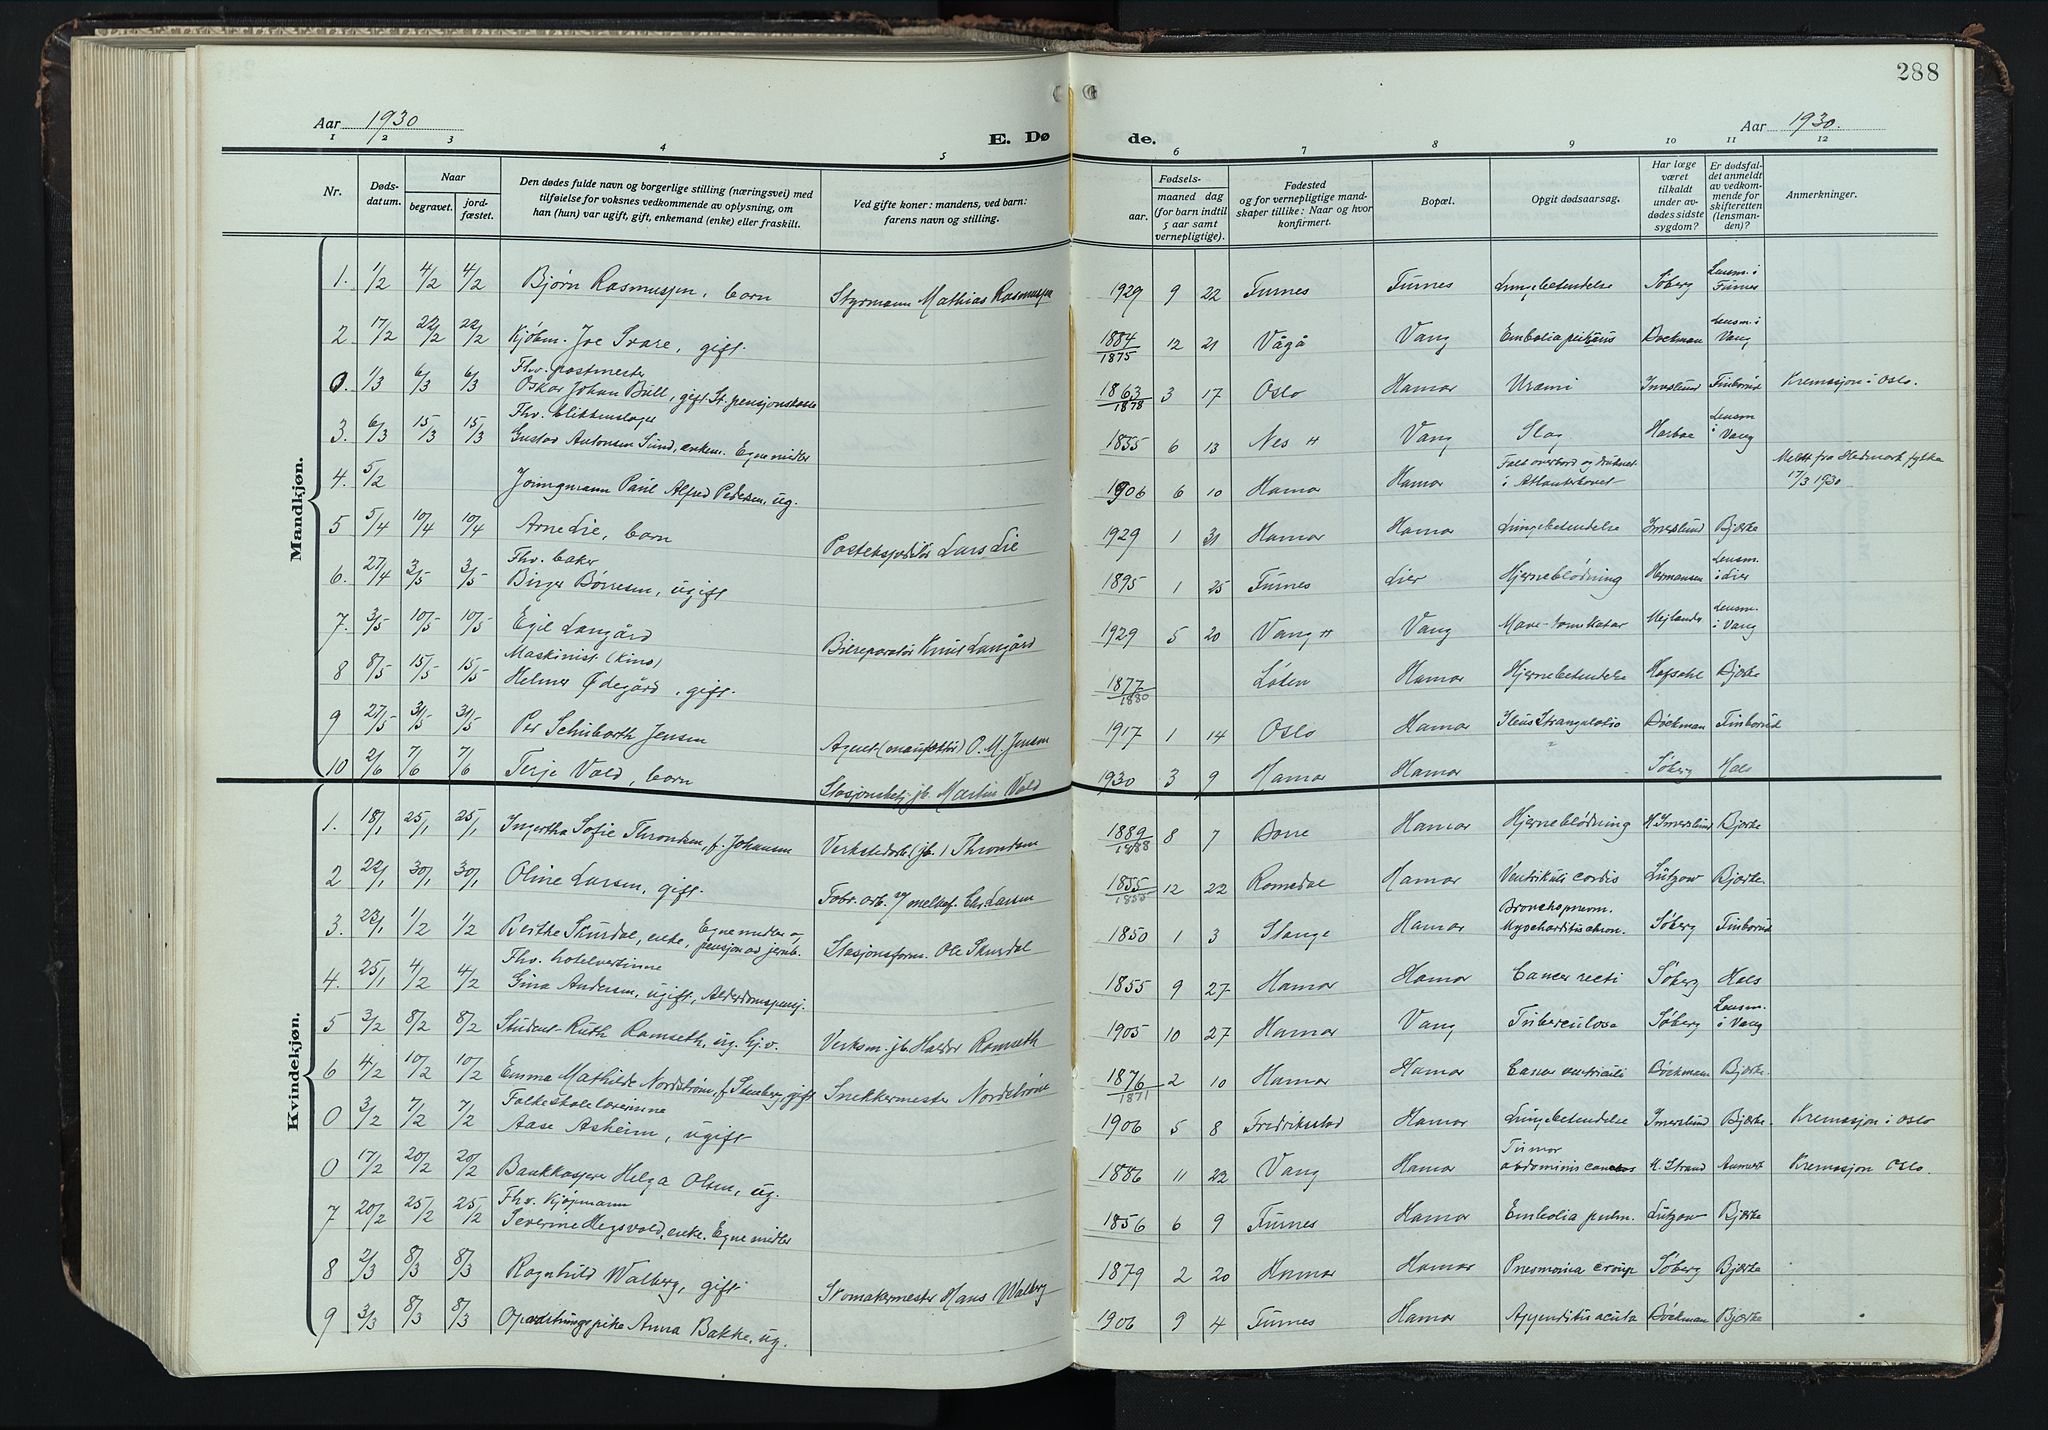 288
Aar 1930
E. Dø
de.
Aar 1930.
1 2 3 4 5 6 7 8 9 10 11 12
Nr.
Døds-
datum.
Naar
begravet.
jord-
fæstet.
Den dødes fulde navn og borgerlige stilling (næringsvei) med
tilføielse for voksnes vedkommende av oplysning, om
han (hun) var ugift, gift, enkemand (enke) eller fraskilt.
Ved gifte koner: mandens, ved barn:
farens navn og stilling.
Fødsels-
aar.
maaned dag
(for barn indtil
5 aar samt
vernepligtige).
Fødested
og for vernepligtige mand-
skaper tillike: Naar og hvor
konfirmert.
Bopæl.
Opgit dødsaarsag.
Har læge
været
tilkaldt
under av-
dødes sidste
sygdom?
Er dødsfal-
det anmeldt
av vedkom-
mende for
skifteretten
(lensman-
den)?
Anmerkninger.
Mandkjøn.
1. 1/2 4/2 4/2 Bjørn Rasmussen, barn Styrmann Mathias Rasmussen 1929 9 22 Furnes Furnes Lungebetendelse Søberg Lensm. i Furnes
2 17/2 22/2 22/2 Kjøbm. Joe Svare, gift. 1884/1875 12 21 Vågå Vang Embolia Bøckman Lensm. i Vang
0. 1/3 6/3 6/3 Fhv. postmester
Oskar Johan Bull, gift. St. pensjonskasse 1863/1878 3 17 Oslo Hamar Uræmi Imerslund Finborud Kremasjon i Oslo.
3. 6/3 15/3 15/3 Fhv. blikkenslager
Gustav Antonsen Sund, enkem. Egne midler 1835 6 13 Nes H Vang Slag Harboe Lensm i Vang
4. 5/2 Jungmann Paul Alfred Pedersen, ug. 1906 6 10 Hamar Hamar Falt overbord og druknet
i Atlanterhavet Meldt fra Hedmark fylke
17/3 1930
5 5/4 10/4 10/4 Arne Lie, barn Postekspeditør Lars Lie 1929 1 31 Hamar Hamar Lungebetendelse Imerslund Bjørke
6. 27/4 3/5 3/5 Fhv. baker
Birger Børresen, ugift 1895 1 25 Furnes Lier Hjerneblødning Hermansen Lensm. i Lier
7. 3/5 10/5 10/5 Egil Langård Bilreparatør Knut Langård 1929 5 20 Vang H Vang Mave-tarmkatar Mejlands Lensm. i Vang
8 8/5 15/5 15/5 Maskinist (Kino)
Helmer Ødegård, gift. 1877/1880 Løten Hamar Hjernebetendelse Hofsahl Bjørke
9 27/5 31/5 31/5 Per Schuborth Jensen Agent (manufaktur) O. M. Jensen 1917 1 14 Oslo Hamar Ileus Strangulatio Bøckman Finborud
10 2/6 7/6 7/6 Terje Vold, barn Stasjonsbetj. jb. Martin Vold 1930 3 9 Hamar Hamar " Søberg Hals
Kvindekjøn.
1. 18/1 25/1 25/1 Ingertha Sofie Throndsen, f. Johansen Verkstedarb. (jb.) Throndsen 1889/1888 8 7 Borre Hamar Hjerneblødning H. Imerslund Bjørke
2 22/1 30/1 30/1 Oline Larsen, gift. Fabr. arb. v/ melkef. Chr. Larsen 1855/1855 12 22 Romedal Hamar Ventrikuli cordis Lützow Bjørke.
3. 23/1 1/2 1/2 Berthe Skurdal, enke, Egne midler og
pensjon av jernb. Stasjonsform. Ole Skurdal 1850 1 3 Stange Hamar Bronchopneum.
Myocharditis chron. Søberg Finborud
4. 25/1 4/2 4/2 Fhv. hotelvertinne
Gina Andersen, ugift, Alderdomspensj. 1855 9 27 Hamar Hamar Cancer recti Søberg Hals
5 3/2 8/2 8/2 Student Ruth Ramseth, ug. hj.v. Verksm. jb. Haldor Ramseth 1905 10 27 Hamar Vang Tuberculose Søberg Lensm. i Vang
6 4/2 10/2 10/2 Emma Mathilde Nordstrøm, f. Stenberg, gift Snekkermester Nordstrøm 1876/1871 2 10 Hamar Hamar Cancer ventriculi Bøckman Bjørke.
0 3/2 7/2 7/2 Folkeskolelærerinne
Aase Asheim, ugift 1906 5 8 Fredrikstad Hamar Lungebetendelse Imerslund Bjørke. Kremasjon i Oslo
0 17/2 20/2 20/2 Bankkasserer Helga Olsen, ug. 1886 11 22 Vang Hamar Tumor
abdominis H. Strand Aumert Kremasjon Oslo.
7 20/2 25/2 25/2 Fhv. Kjøpmann
Severine Hegsvold, enke. Egne midler 1856 6 9 Furnes Hamar Embolia pulm. Lützow Bjørke
8 2/3 8/3 8/3 Ragnhild Walberg, gift. Skomakermester Hans Walberg 1879 2 20 Hamar Hamar Pnesmonia croup Søberg Bjørke
9 3/3 8/3 8/3 Opvartningspike Anna Bakke, ug. 1906 9 4 Furnes Hamar Appenditis acuta Bøckman Bjørke